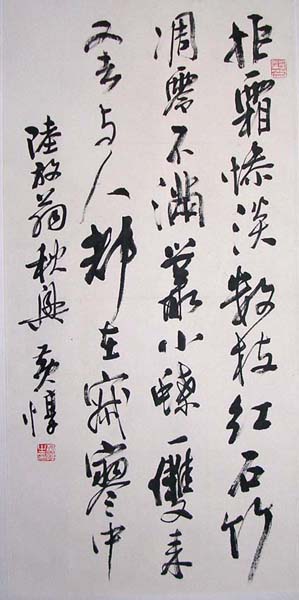 拒霜慘淡數枝紅石竹
凋零不滿叢小蝶一雙来
又去与人都在寂寥中
陸放翁秋興 黃惇